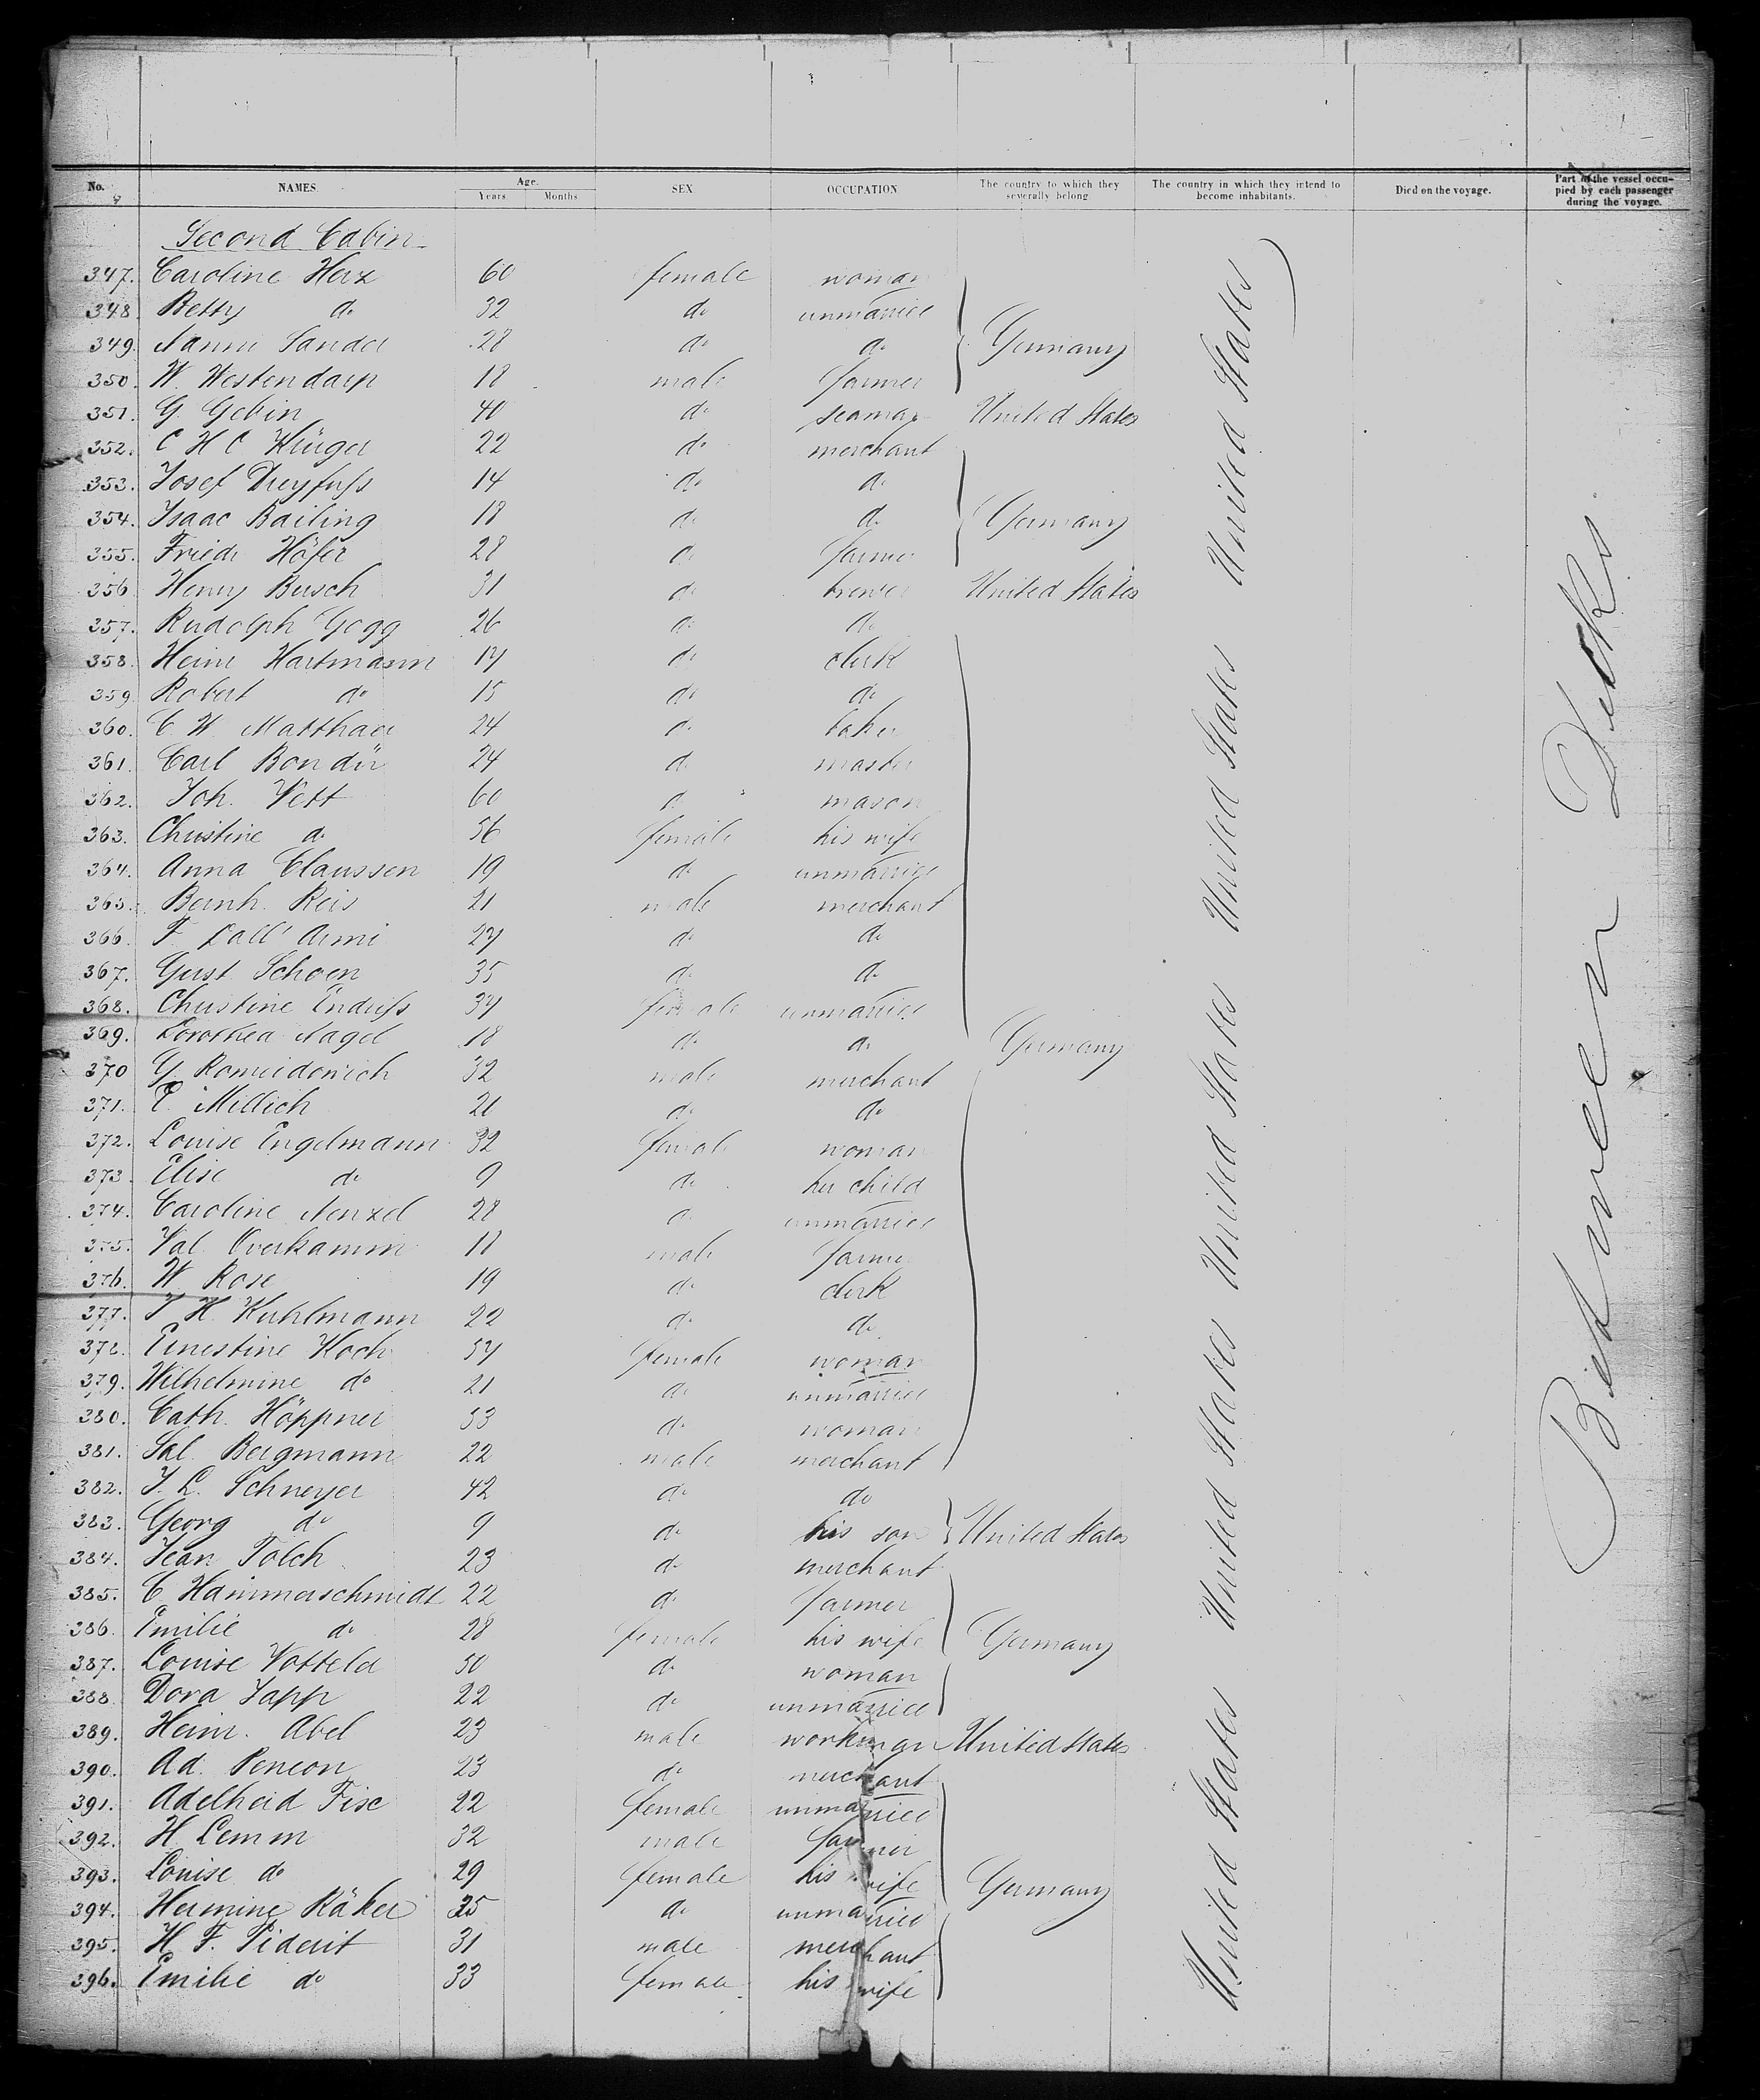 No. NAMES. Age. Years Months SEX OCCUPATION The country to which they severally belong The country in which they intend to become inhabitants. Died on the voyage. Part of the vessel occupied by each passenger during the voyage.
Second Cabin
347. Caroline Herz 60 female woman
348. Betty do 32 do unmarried
349. Nanni Sander 28 do do Germany
350. W. Westendarp 18 male farmer
351. G. Gebin 40 do seaman United States
352. C H C Krüger 22 do merchant
353. Josef Dreyfuss 14 do do
354. Isaac Bailing 18 do do Germany
355. Friedr Höfer 28 do farmer
356 Henry Busch 31 do brewer United States
357. Rudolph Gogg 26 do do
358. Heinr Hartmann 17 do clerk
359. Robert do 15 do do
360. C. W. Matthaei 24 do baker
361. Carl 24 do master
362. Joh. Vett 60 do mason
363. Christine do 56 female his wife
364. Anna Claussen 19 do unmarried
365. Bernh. Reis 21 male merchant
366. F. Dall' Armi 27 do do
367. Gust. Schoen 35 do do
368. Christine Endriss 37 female unmarried
369. Dorothea Nagel 18 do do Germany
370 G. 32 male merchant
371. E. Millich 21 do do
372. Louise Engelmann 32 female woman
373. Elise do 9 do her child
374. Caroline Nenzel 28 do unmarried
375. Val. Overkamm 18 male farmer
376. W. Rose 19 do clerk
377. J. H. Kuhlmann 22 do do
378. Ernestine Koch 57 female woman
379. Wilhelmine do 21 do unmarried
380. Cath. Höppner 53 do woman
381. Sal. Bergmann 22 male merchant
382. J. L. Schneyer 42 do do
383. Georg do 9 do his son United States
384. Jean Tolch 23 do merchant
385. C. Hammerschmidt 22 do farmer
386. Emilie do 28 female his wife Germany
387. Louise Votteld 50 do woman
388. Dora Japp 22 do unmarried
389. Heinr. Abel 23 male workman United States
390. Ad. Peneon 23 do merchant
391. Adelheid Fise 22 female unmarried
392. H. Lemm 32 male farmer
393. Louise do 29 female his wife Germany
394. Hermine Käker 25 do unmarried
395. H. F. Piderit 31 male merchant
396. Emilie do 33 female his wife
United States United States United States United States United States
Between Decks